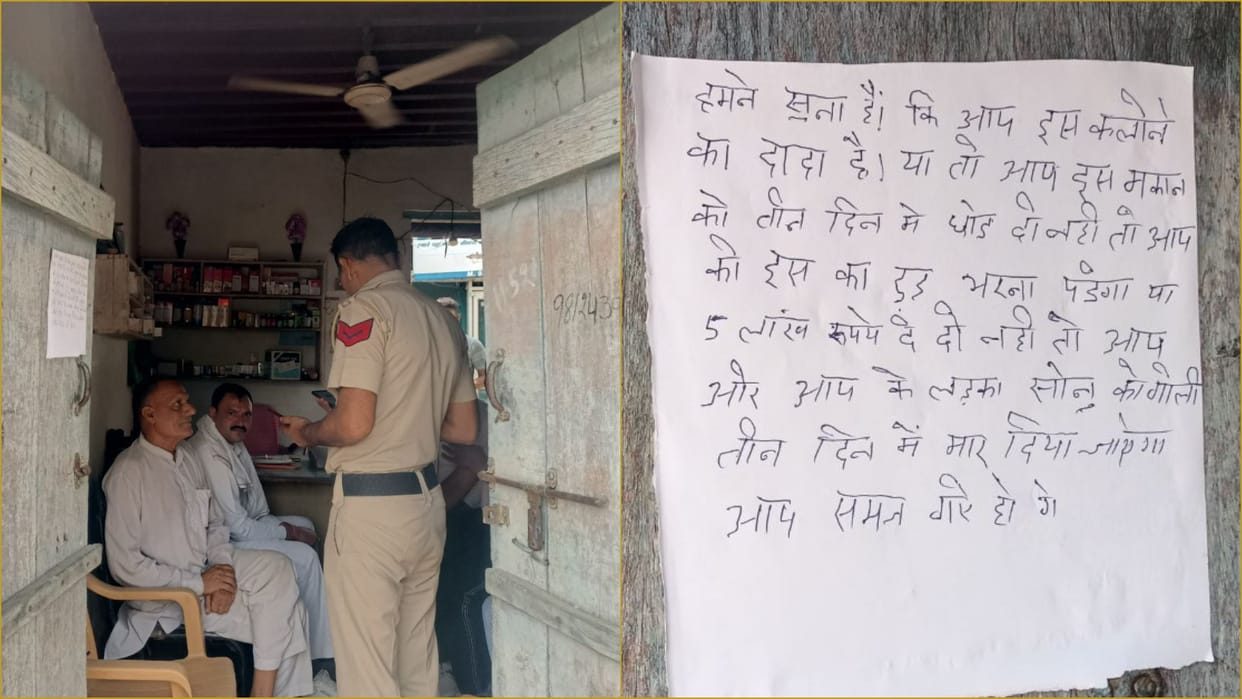 हमने सुना हैं। कि आप इस कलोने
का दादा है। या तो आप इस मकान
को तीन दिन मे छोड दो नही तो आप
को इस का दंड भरना पडेगा या
5 लांख रूपये दे दो नही तो आप
और आप के लड़का सोनू को गोली
तीन दिन में मार दिया जाऐगा
आप समज गऐ हो गे